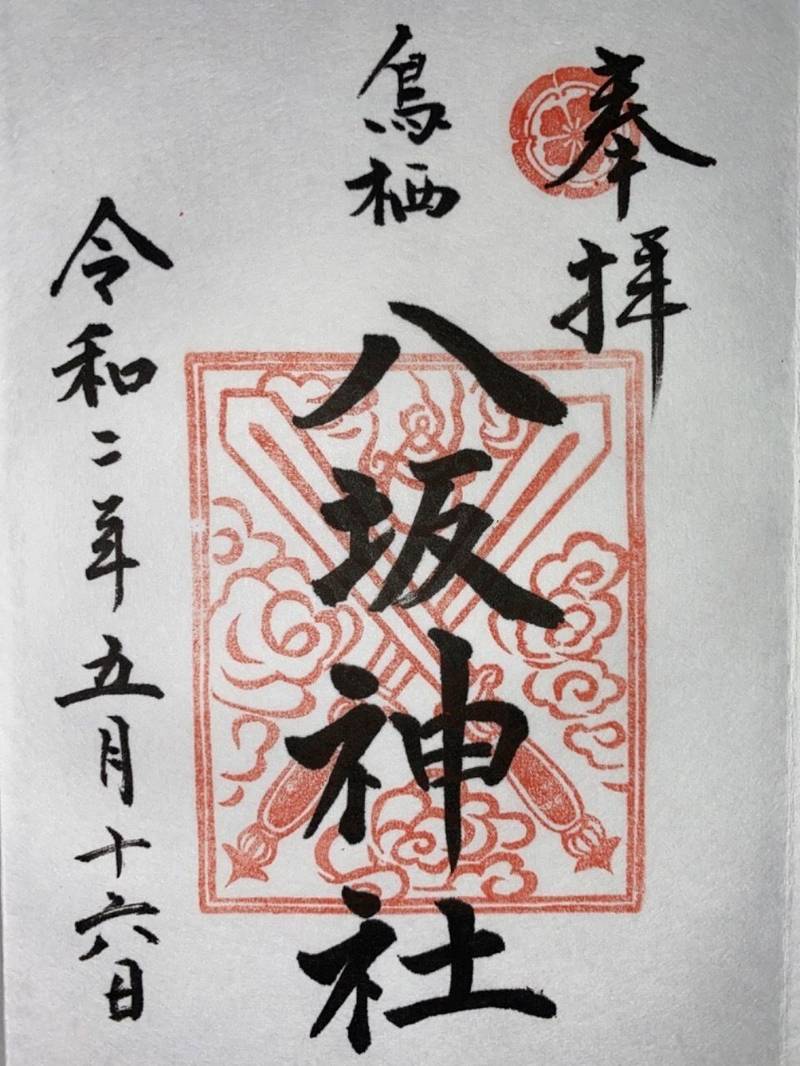 奉拝
鳥栖
八坂神社
令和二年五月十六日